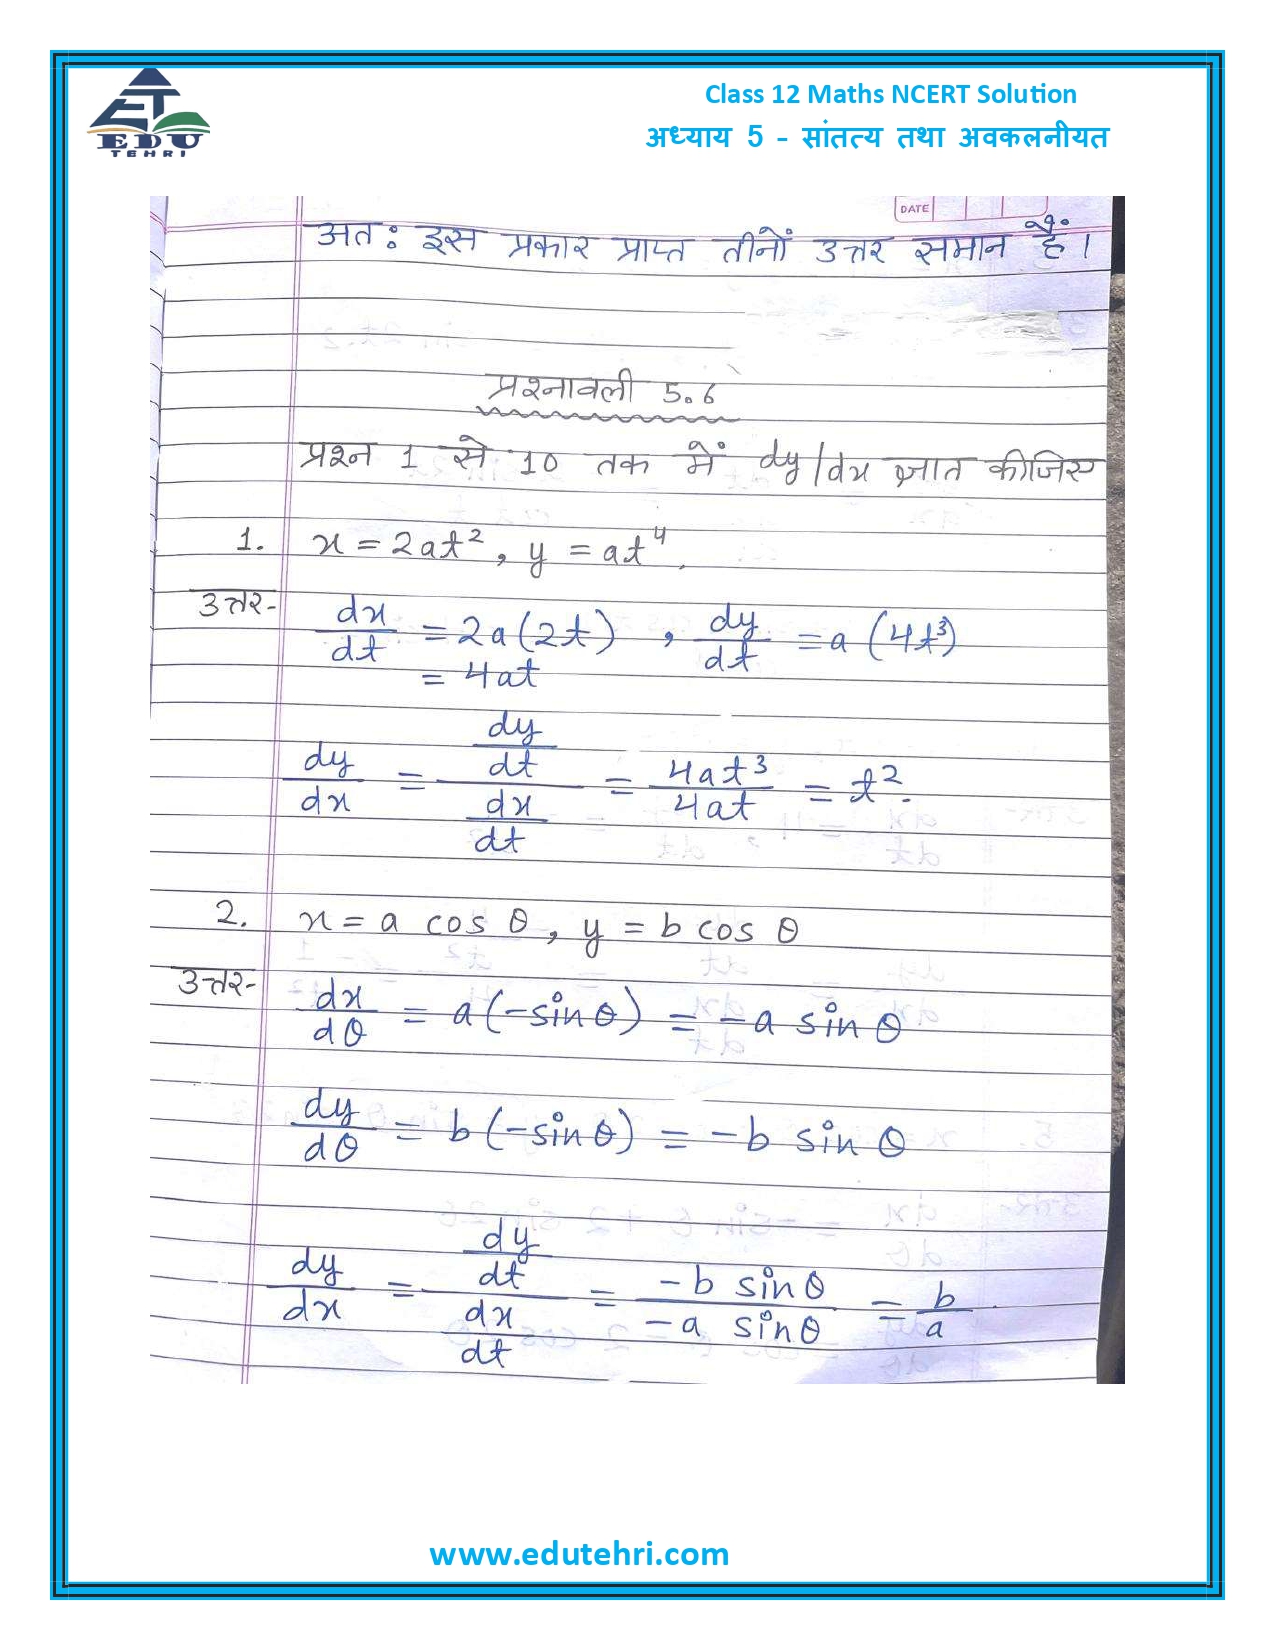 EDU
TEHRI
Class 12 Maths NCERT Solution
अध्याय 5 - सांतत्य तथा अवकलनीयत
DATE
अतः इस प्रकार प्राप्त तीनों उत्तर समान हैं।
प्रश्नावली 5.6
प्रश्न 1 से 10 तक में dy/dx ज्ञात कीजिए
1. x = 2at², y = at⁴.
उत्तर- dx/dt = 2a(2t) , dy/dt = a(4t³)
= 4at
dy/dx = (dy/dt)/(dx/dt) = 4at³/4at = t².
2. x = a cos θ, y = b cos θ
उत्तर- dx/dθ = a(-sinθ) = -a sin θ
dy/dθ = b(-sinθ) = -b sin θ
dy/dx = (dy/dt)/(dx/dt) = -b sinθ/-a sinθ = b/a.
www.edutehri.com